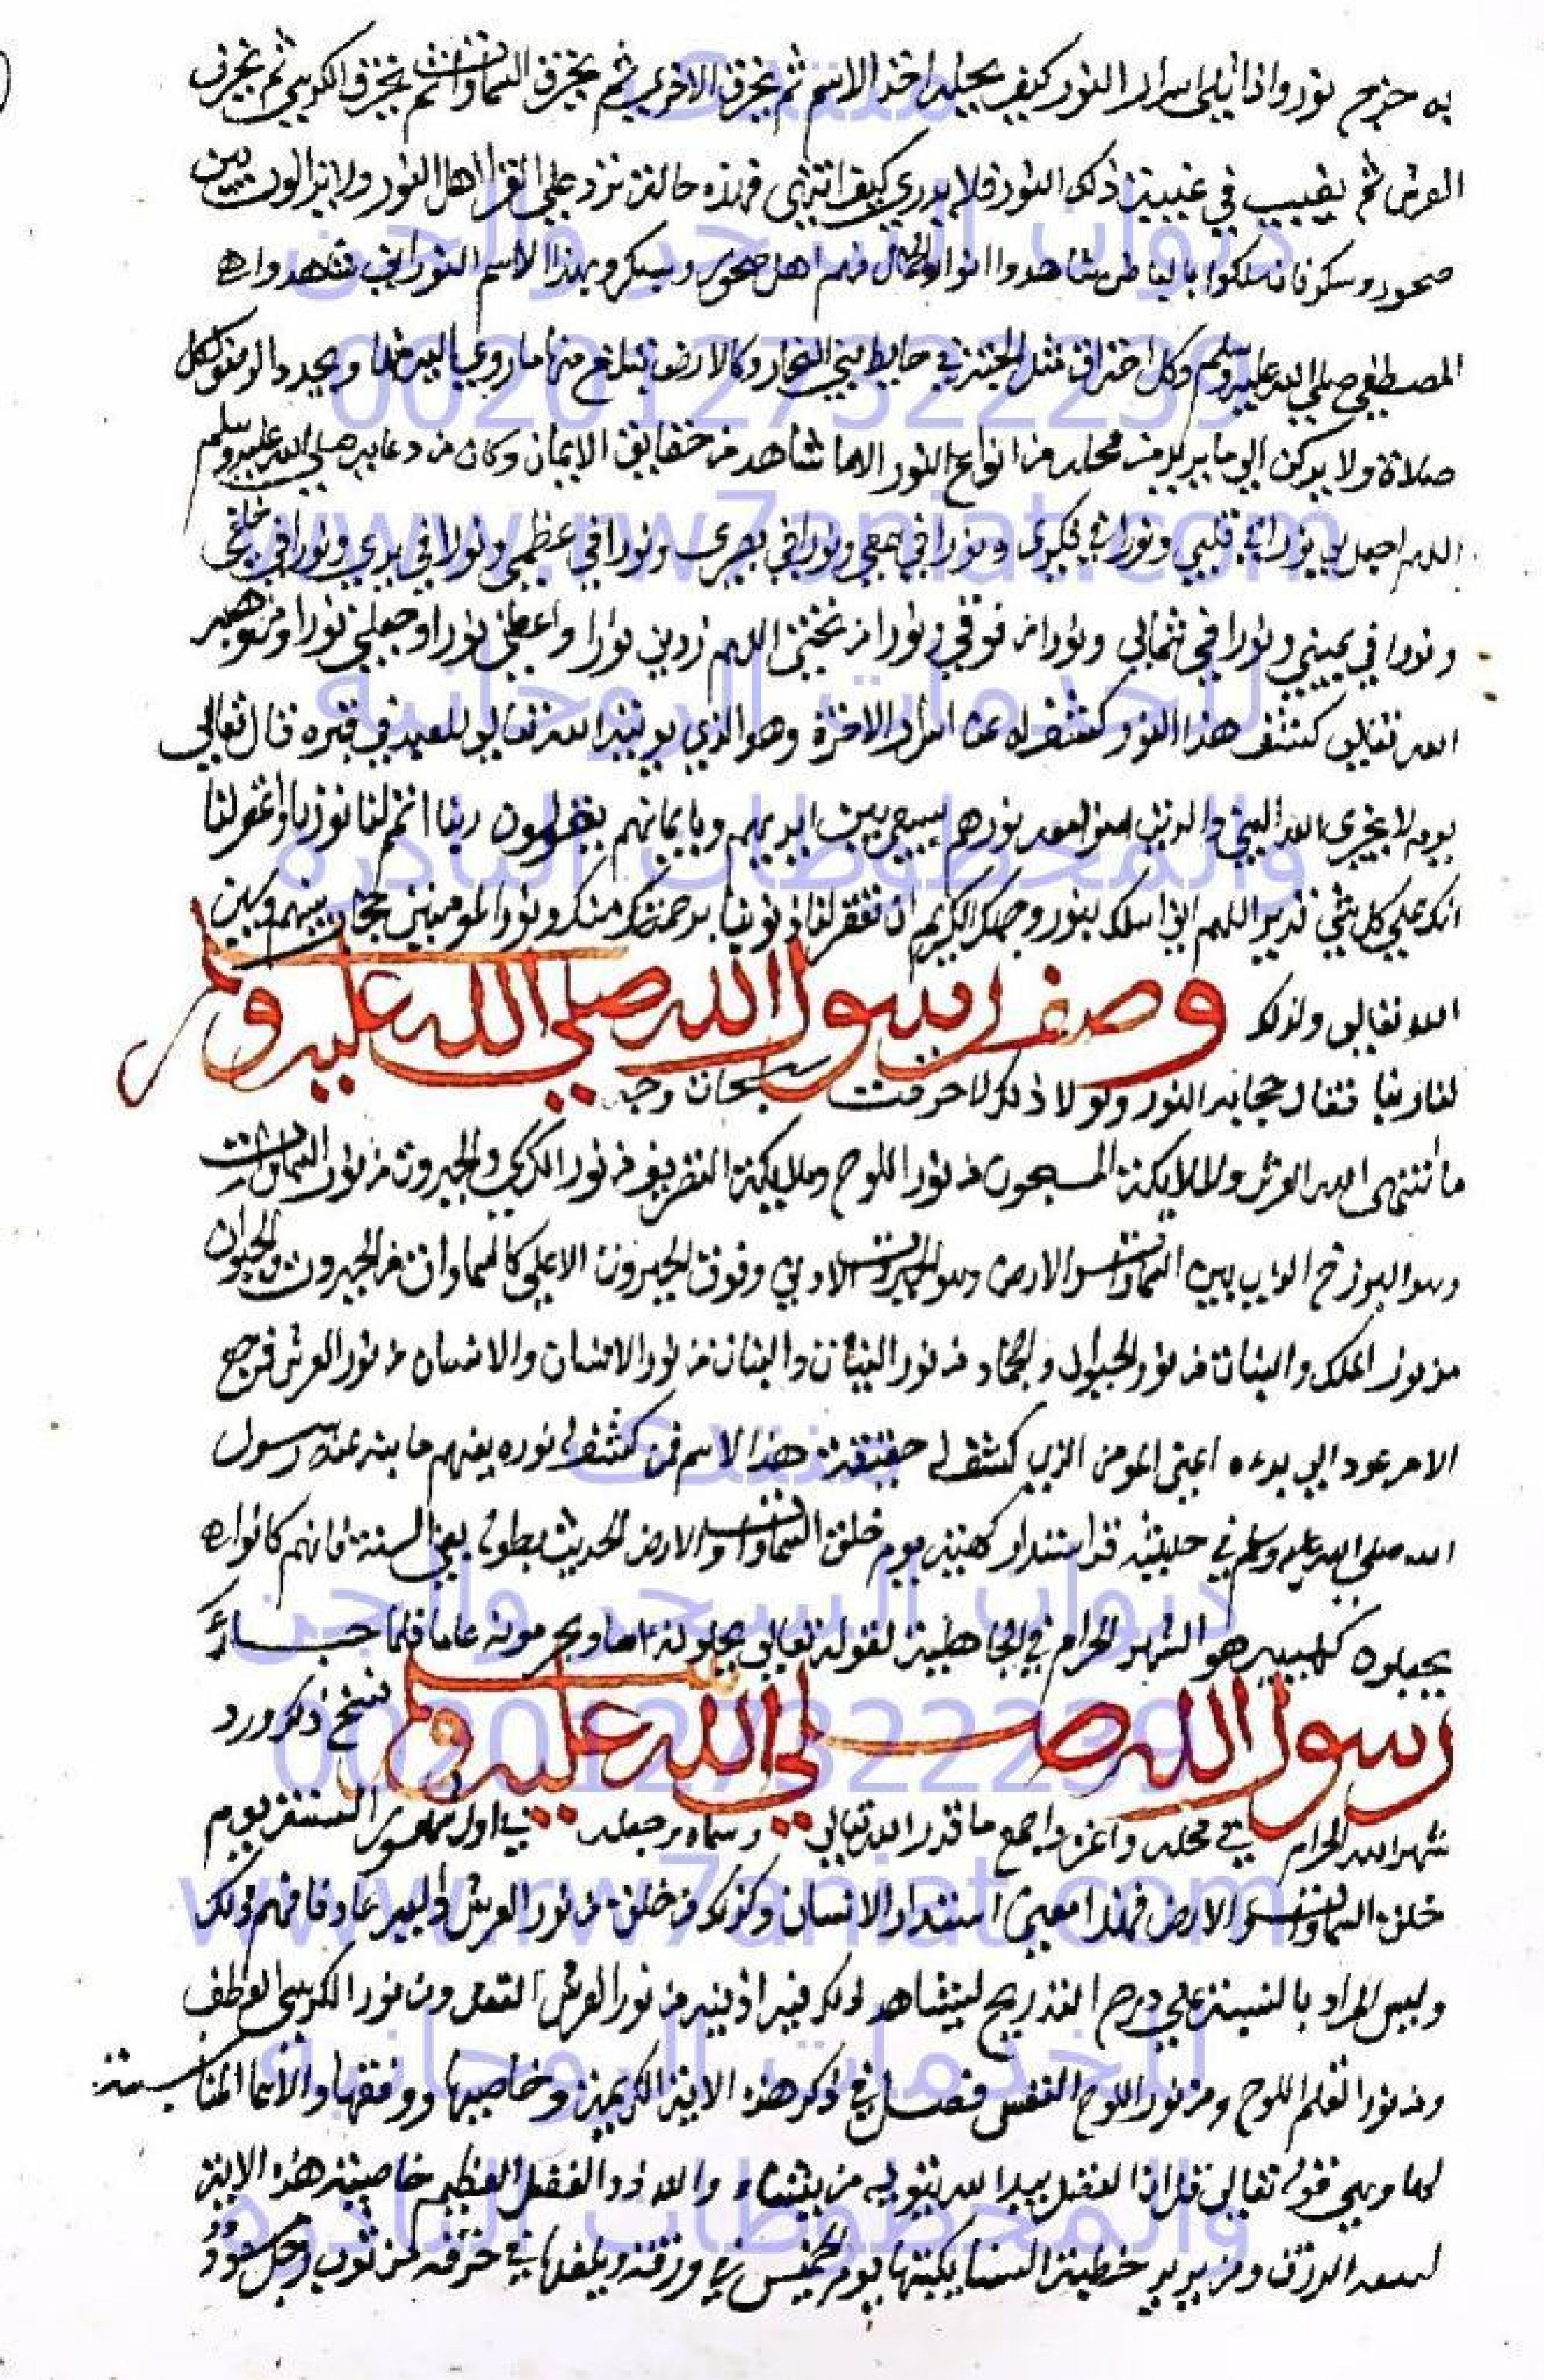 به خرج نور واذا تلى اسرار النور كيف يجليه اخذ الاسم ثم يخرق الاخرى ثم يخرق السماوات ثم يخرق الكرسي ثم يخرق
العرش ثم يغيب في غيبة ذلك النور فلا يدري كيف انتهى فهذه حالة ترد على القرا اهل النور ولا يزالون بين
صحو وسكر فان سلكوا بالباطن شاهدوا انوار الجمال فهم اهل صحو وسكر وبهذا الاسم النوراني شاهدوا
المصطفى صلى الله عليه وسلم وكل اختراق مثل الجنة في حايط بني النجار وكالارض تبتلع منها ما روي ويجدد الوضو لكل
صلاة ولا يركن الى ما يرد من محله من انواع النور الا ما شاهد من حقايق الايمان وكان من دعايه صلى الله عليه وسلم
اللهم اجعل لي نورا في قلبي ونورا في فكري ونورا في سمعي ونورا في بصري ونورا في عظمي ونورا في يدي ونورا في خلفي
ونورا في يميني ونورا في شمالي ونورا من فوقي ونورا من تحتي اللهم زدني نورا واعطني نورا واجعلني نورا ومن
الله تعالى كشف هذا النور كشف له عن الدار الاخرة وهو الذي يثبته الله تعالى للعبد في قبره قال تعالى
يوم لا يخزى الله النبي والذين امنوا معه نورهم يسعى بين ايديهم وبايمانهم يقولون ربنا اتمم لنا نورنا واغفر لنا
انك على كل شي قدير اللهم اني اسلك بنور وجهك الكريم ان تغفر لنا ذنوبنا برحمتك منك ونور المومنين حجاب بينهم وبين
الله تعالى ولذلك وصف رسول الله صلى الله عليه وسلم
لنا ربنا فقال حجابه النور ولولا ذلك لاحرقت سبحات وجه
ما انتهى اليه العرش والملايكة المسبحون من نور اللوح وملايكة التصريف من نور الكرسي والجبروت من نور السماوات
وهو البرزخ الذي بين السماوات والارض وهو الجبروت الادنى وفوق الجبروت الاعلى كالسماوات من الجبروت والحيوان
من نور الملك والنبات من نور الحيوان والجماد من نور النبات والنبات من نور الانسان والانسان من نور العرش فرجع
الامر عود الى بدءه اعني المومن الذي كشف له حقيقة هذا الاسم فمن كشف له نوره يفهم ما بينه عنه رسول
الله صلى الله عليه وسلم في حديثه قد استدار كهيئته يوم خلق السماوات والارض الحديث بطوله يعني السنة فانهم كانوا
يجعلوه كبيسه هو الشهر الحرام في الجاهلية لقوله تعالى يحلونه عاما ويحرمونه عاما فلما جاء
رسول الله صلى الله عليه وسلم نسخ ذلك ورد
شهر الله الحرام في محله واعز واجمع ما قدر الله تعالى وسماه وجعله في اول شهور السنة يوم
خلق السماوات والارض فهذا معنى استدار الانسان وكذلك من خلق من نور العرش واليه عاد فافهم ذلك
وليس المراد بالنسبة على درج التدريج ليشاهد ذلك فيه اذ فيه من نور العرش العقل ومن نور الكرسي العواطف
ومن نور القلم اللوح ومن نور اللوح النفس فصل في ذكر هذه الاية الكريمة وخاصيتها ووفقها والاسما المناسبة
لها وهي قوله تعالى قل ان الفضل بيد الله يوتيه من يشاء والله ذو الفضل العظيم خاصية هذه الاية
لسعة الرزق ومن يريد خطبة النسا يكتبها يوم الخميس في ورقة ويلفها في خرقة من ثوب رجل
منتدى
ديوان السحر والجن
00201273222239
www.rw7aniat.com
للخدمات الروحانية
والمخطوطات النادرة
منتدى
ديوان السحر والجن
00201273222239
www.rw7aniat.com
للخدمات الروحانية
والمخطوطات النادرة